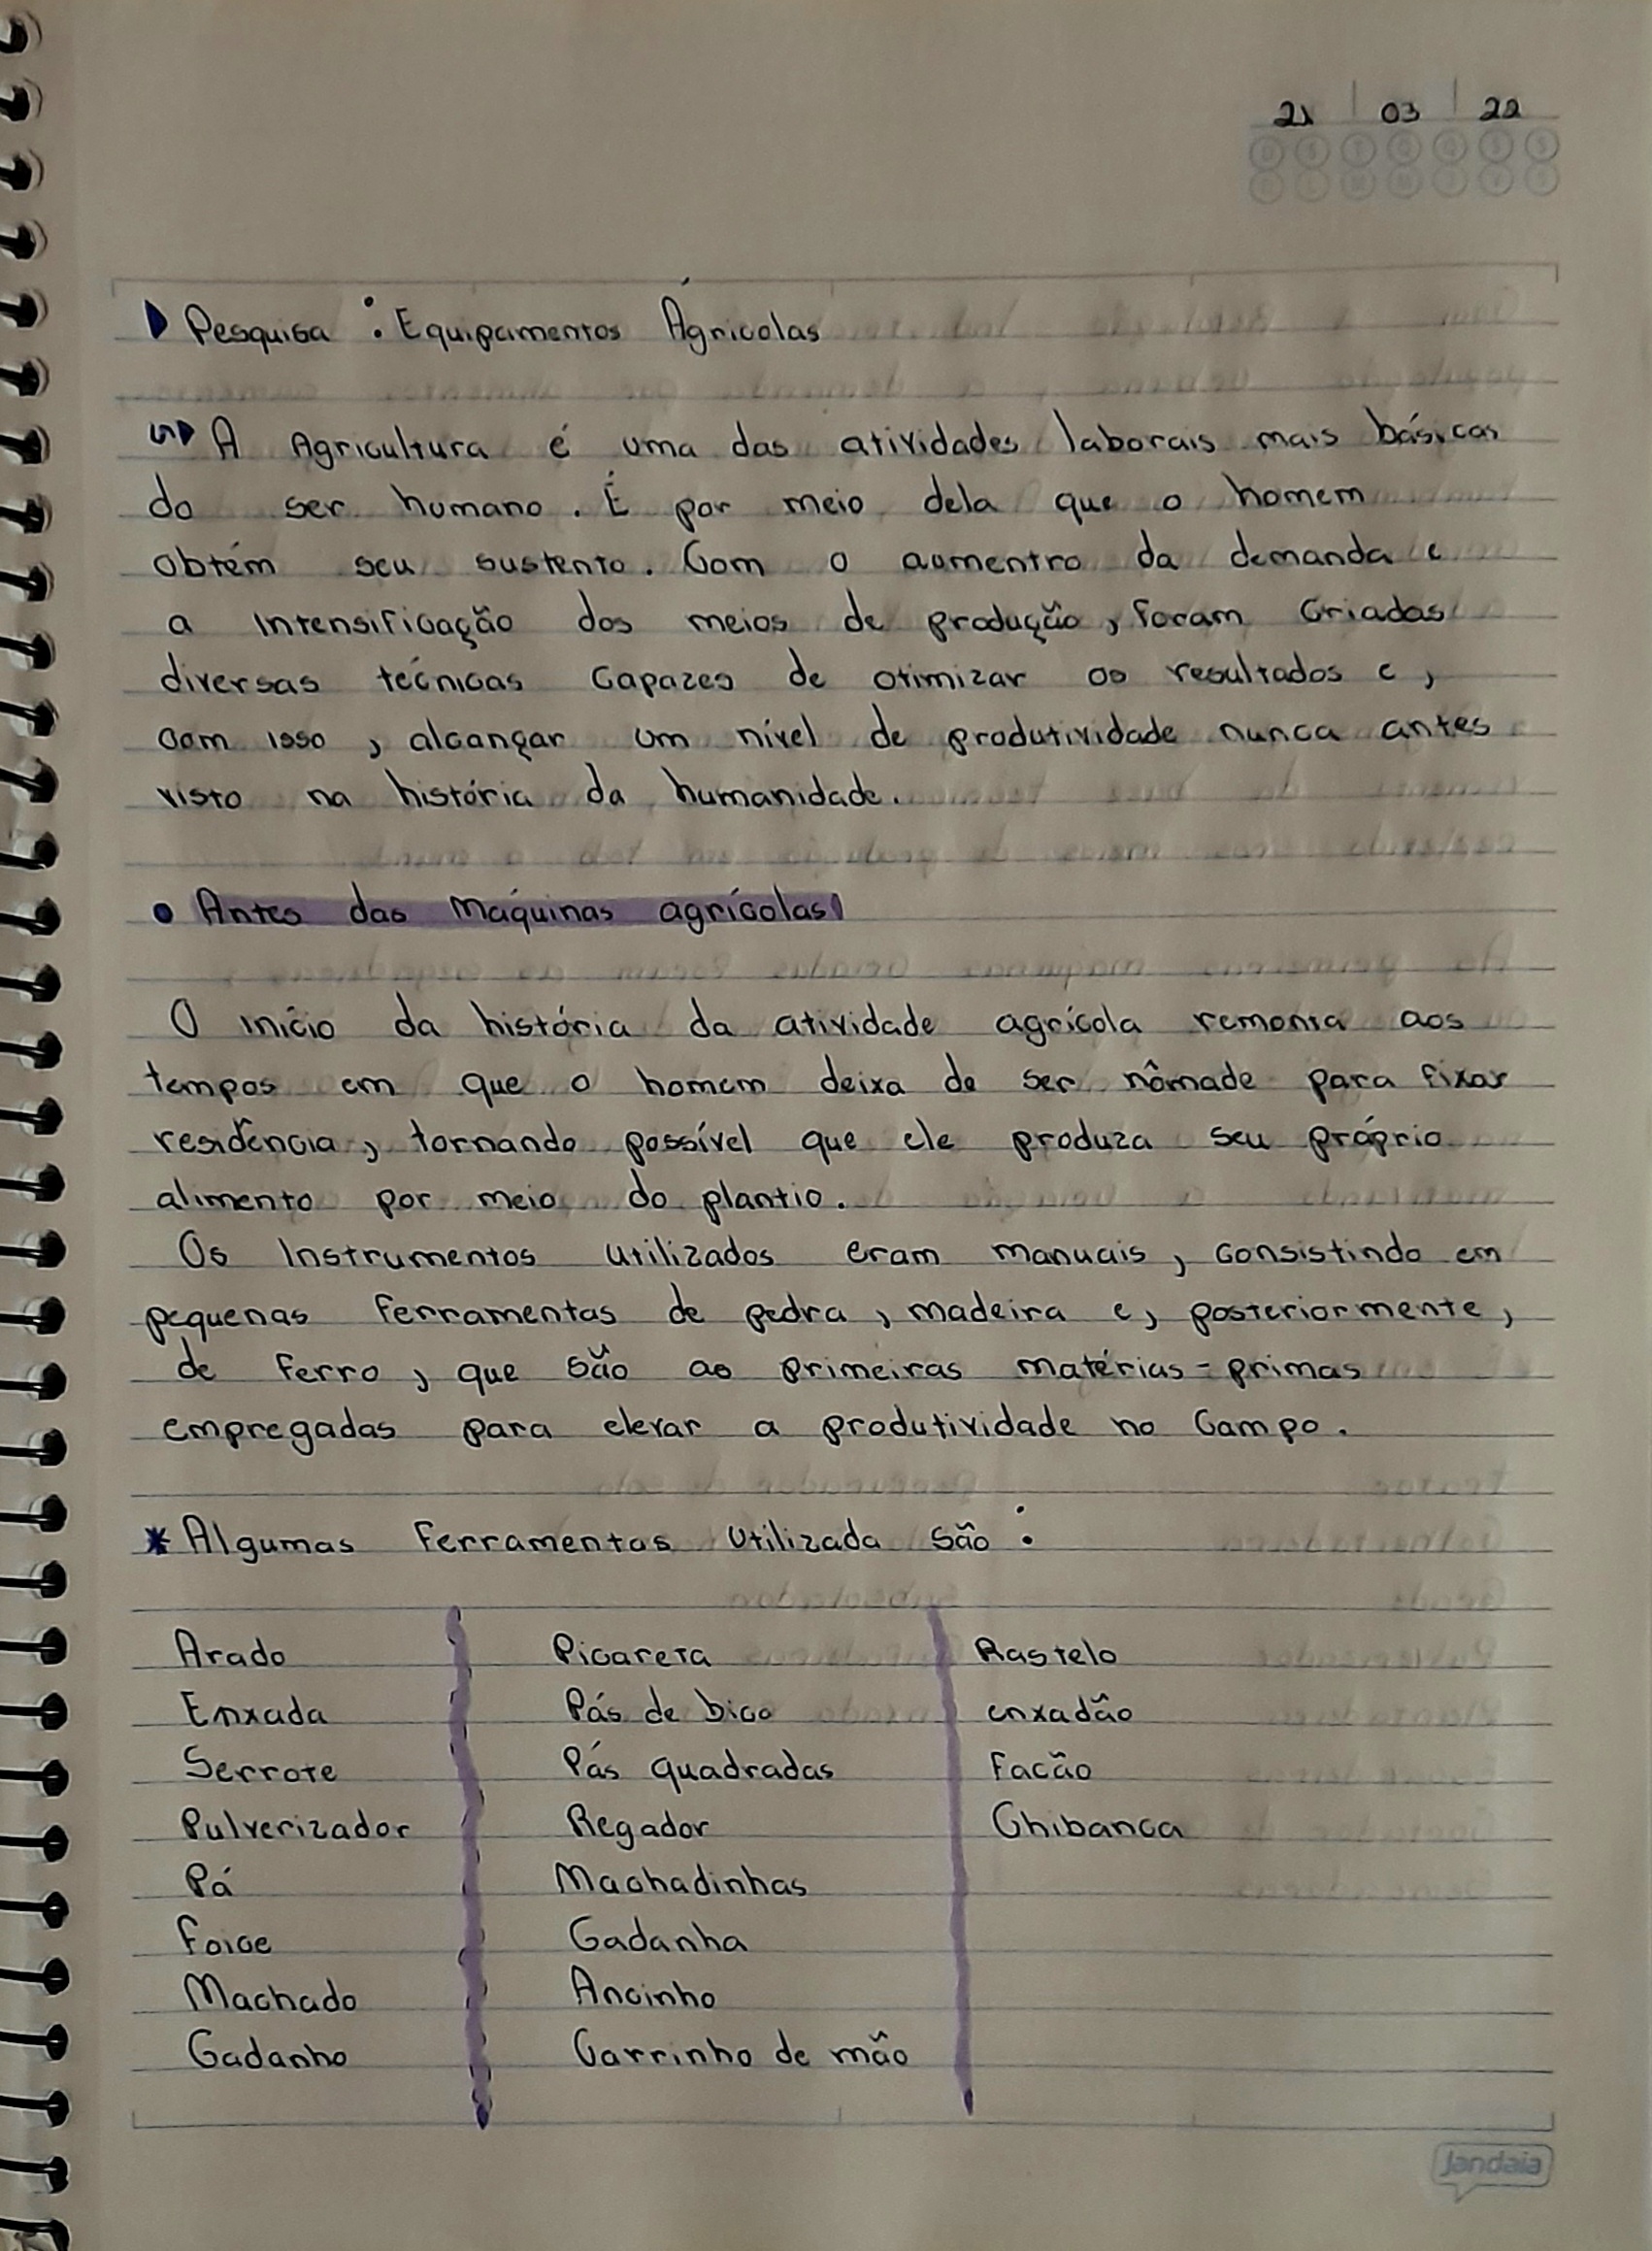 21 | 03 | 22
Pesquisa : Equipamentos Ágricolas
A Agricultura é uma das atividades laborais mais básicas
do ser humano. É por meio dela que o homem
obtém seu sustento. Com o aumentro da demanda e
a intensificação dos meios de produção, foram criadas
diversas técnicas capazes de otimizar os resultados e,
com isso, alcançar um nível de produtividade nunca antes
visto na história da humanidade.
• Antes das Máquinas agrícolas
O início da história da atividade agrícola remonta aos
tempos em que o homem deixa de ser nômade para fixar
residência, tornando possível que ele produza seu próprio
alimento por meio do plantio.
Os Instrumentos utilizados eram manuais, consistindo em
pequenas ferramentas de pedra, madeira e, posteriormente,
de ferro, que são as primeiras matérias-primas
empregadas para elevar a produtividade no campo.
* Algumas ferramentas utilizada são :
Arado Picareta Rastelo
Enxada Pás de bico enxadão
Serrote Pás quadradas Facão
Pulverizador Regador Chibanca
Pá Machadinhas
Foice Gadanha
Machado Ancinho
Gadanho Carrinho de mão
Jandaia